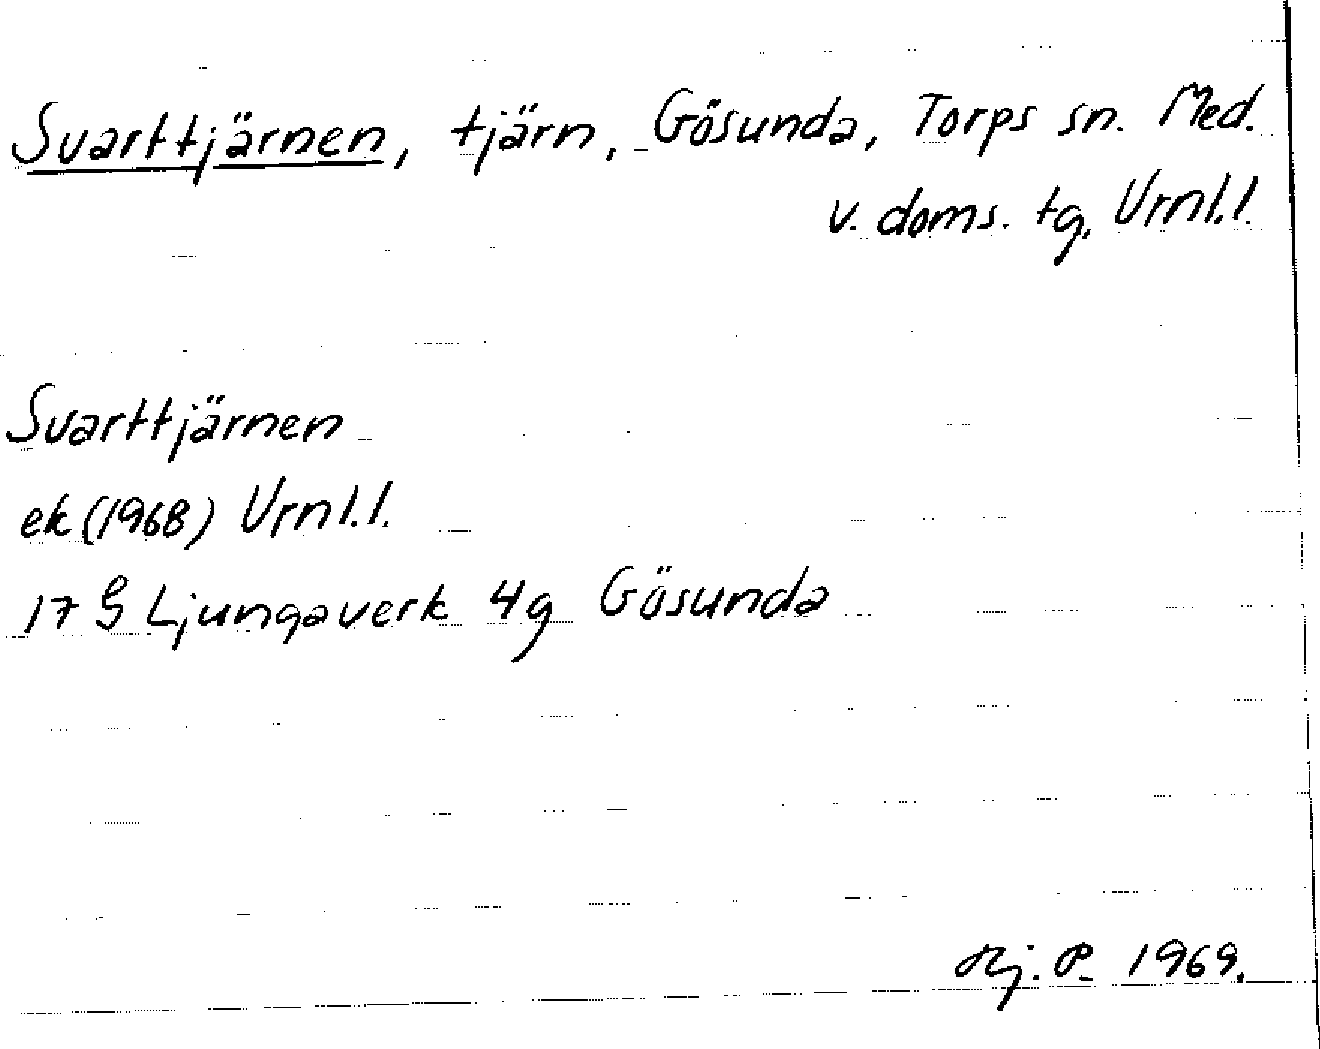 Svarttjärnen, tjärn, Gösunda, Torps sn. Med.
v. doms. tg. Vrnl.l.
Svarttjärnen
ek (1968) Vrnl.l.
17 G Ljungaverk 4g Gösunda
P. 1969.